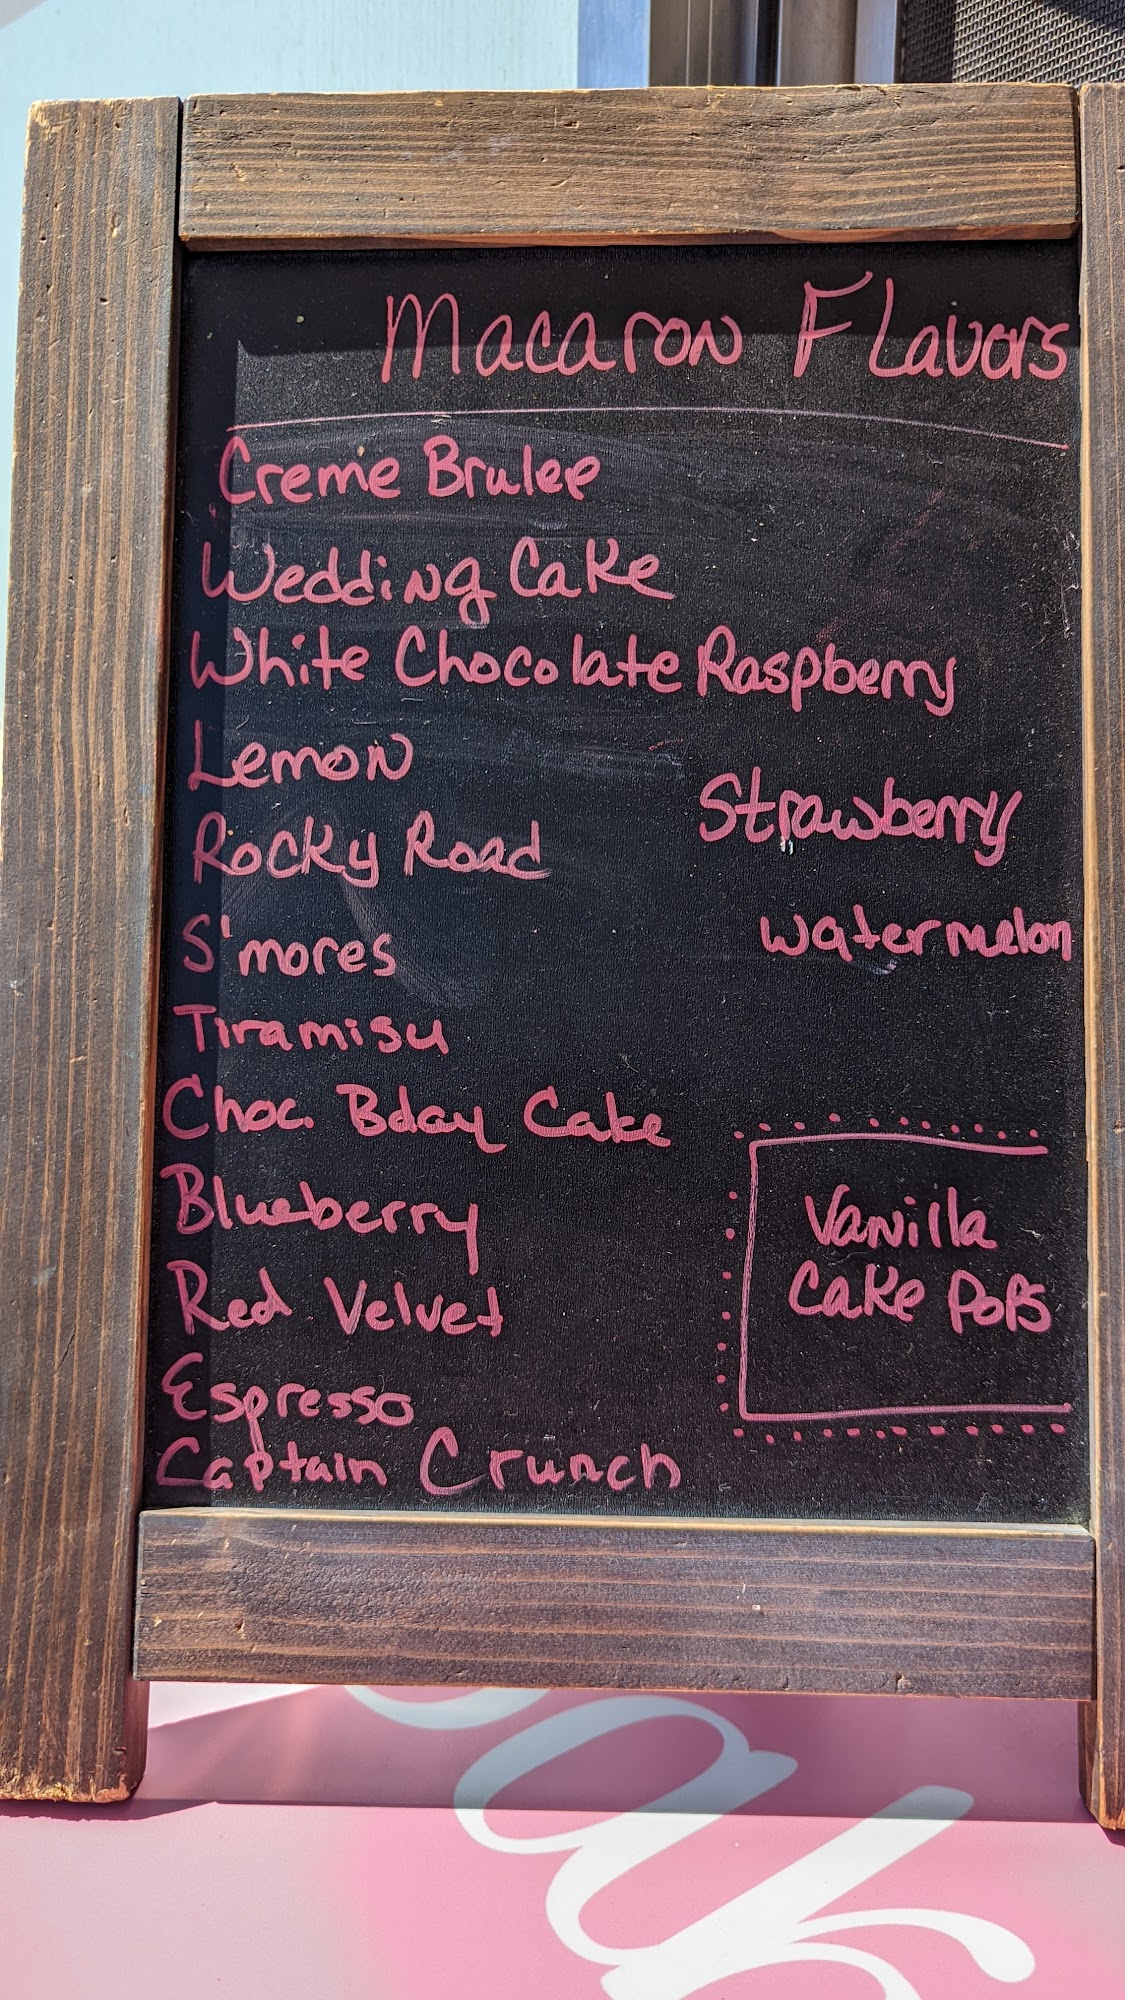 Macaron Flavors
Creme Brulee
Wedding Cake
White Chocolate Raspberry
Lemon
Strawberry
Rocky Road
S'mores
watermelon
Tiramisu
Choc. Bday Cake
Blueberry
Red Velvet
Vanilla
Cake Pops
Espresso
Captain Crunch